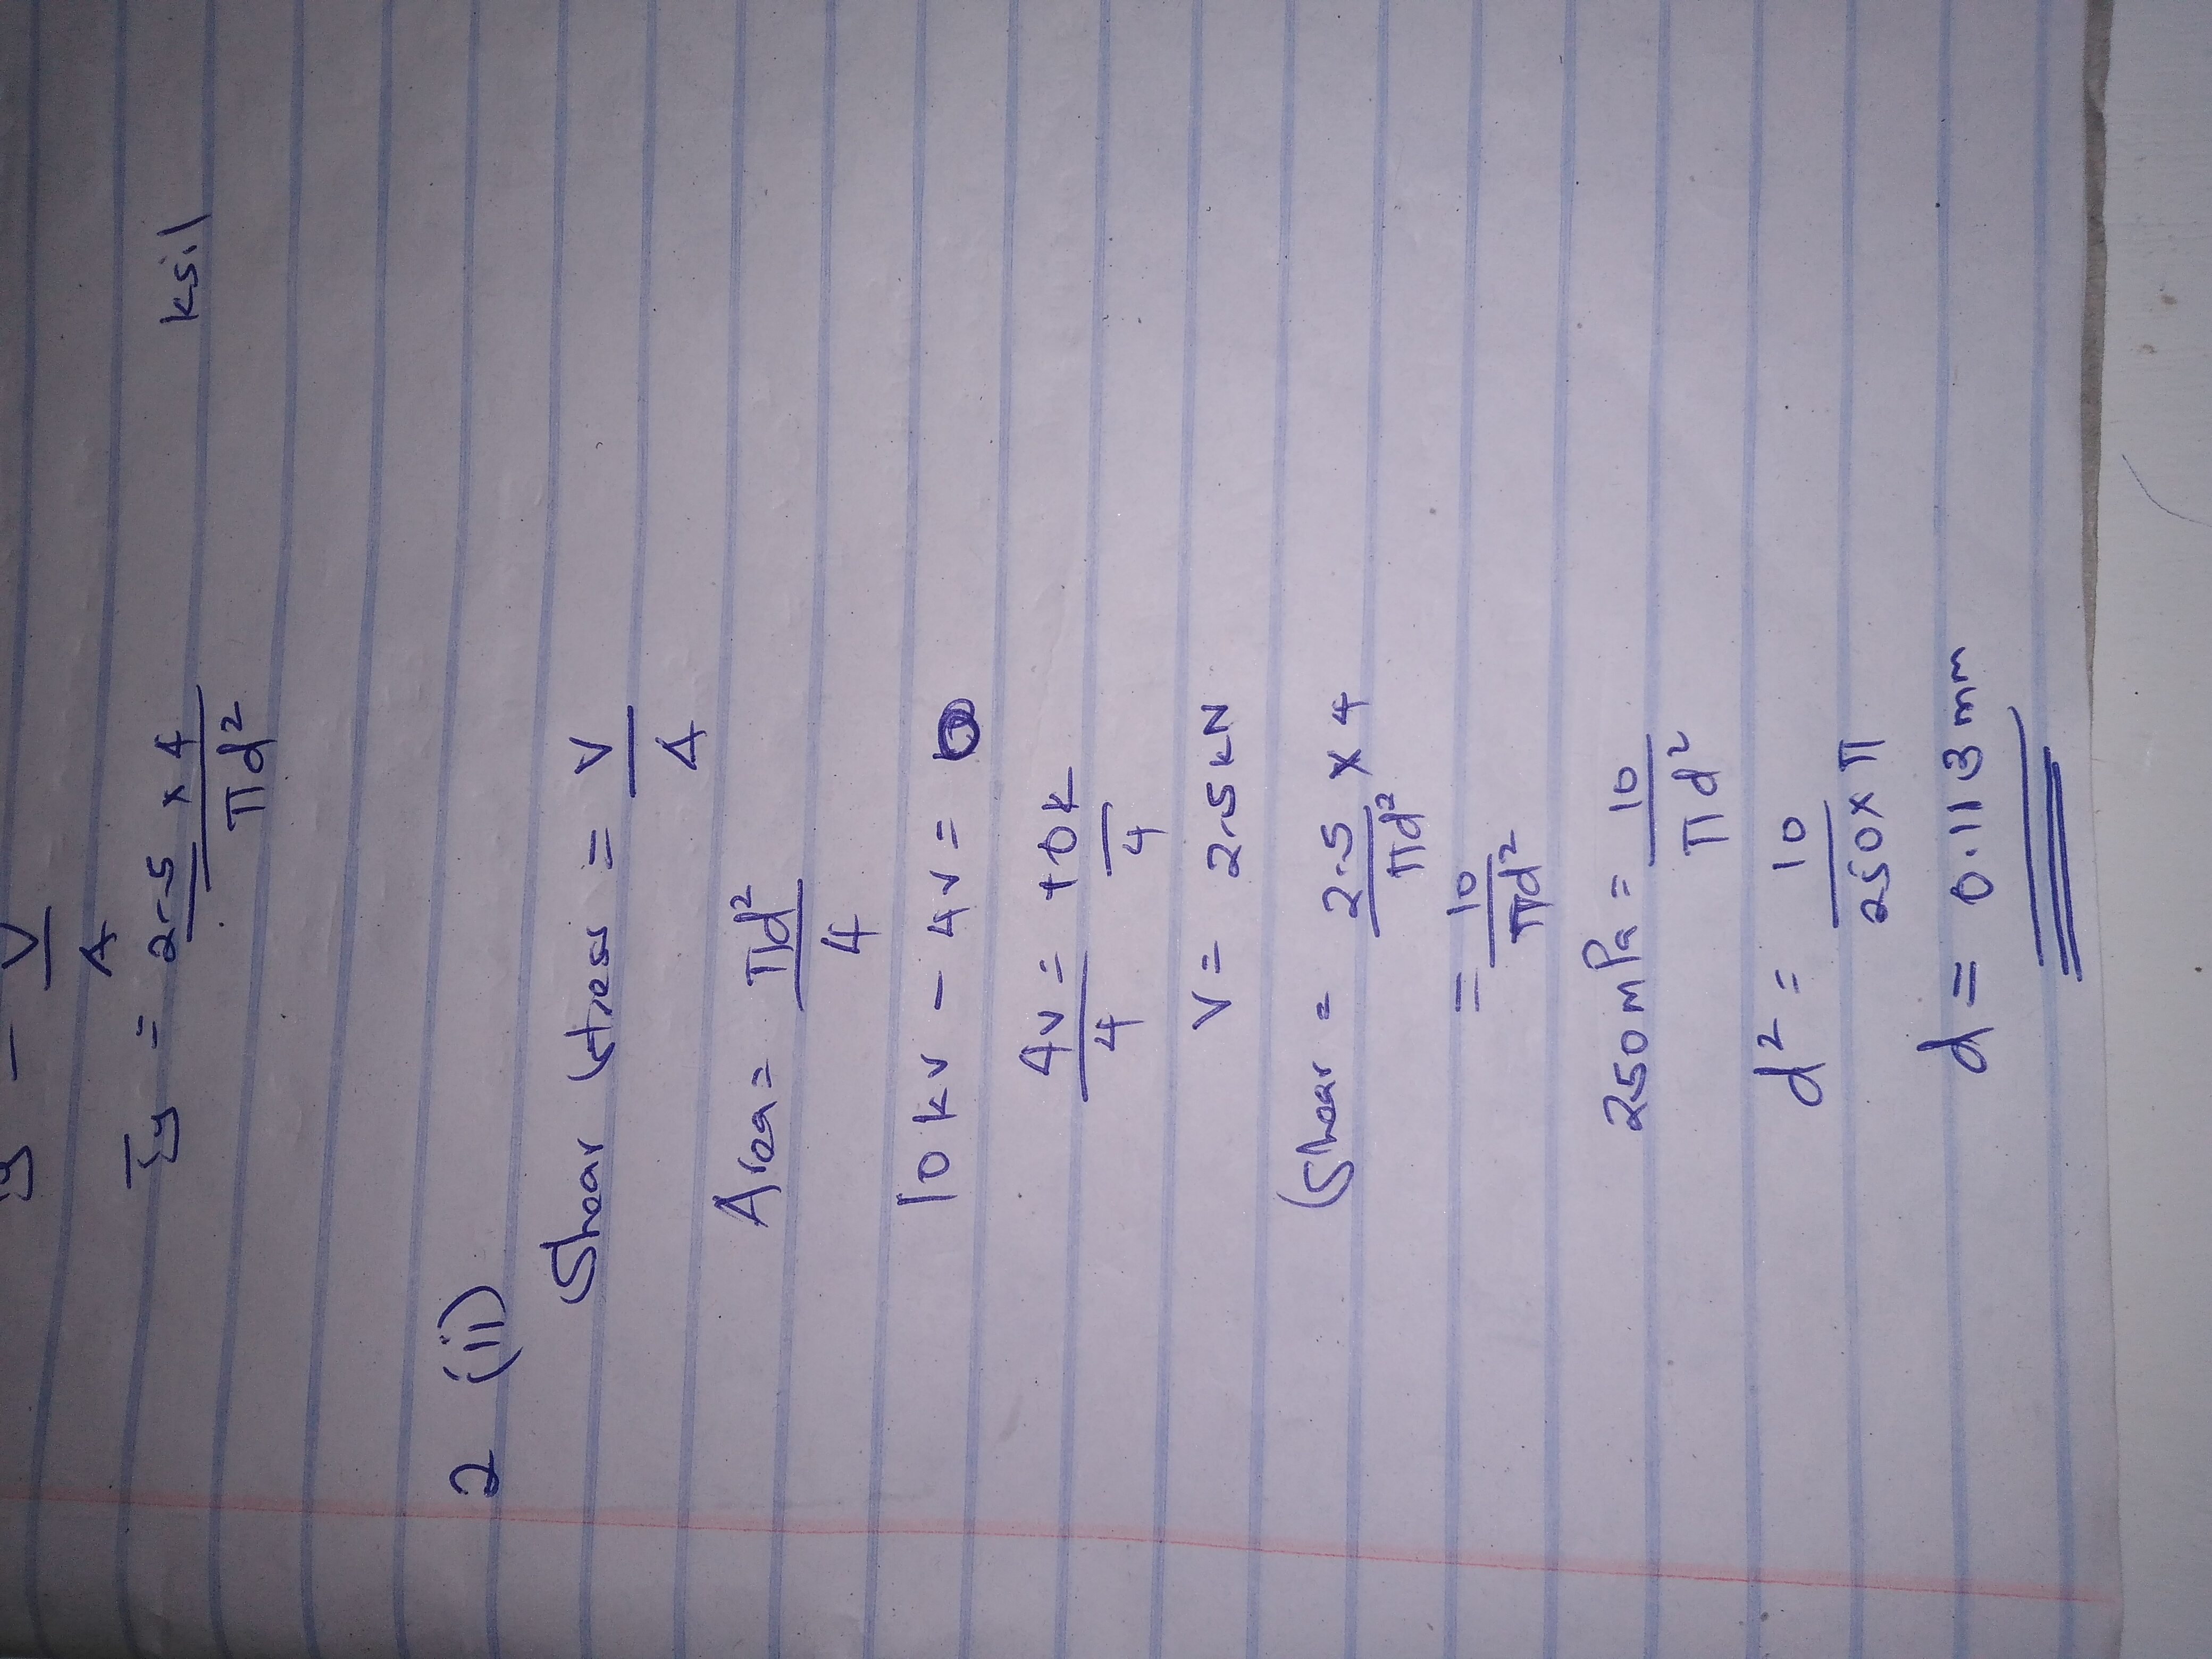 V
A
= 2.5 × 4
πd²
ksi
2 (ii)
Shear stress = V
A
Area = πd²
4
10kv - 4v = 0
4v = 10k
4 4
V = 2.5kN
Shear = 2.5 × 4
πd²
= 10
πd²
250mPa = 10
πd²
d² = 10
250×π
d = 0.113mm